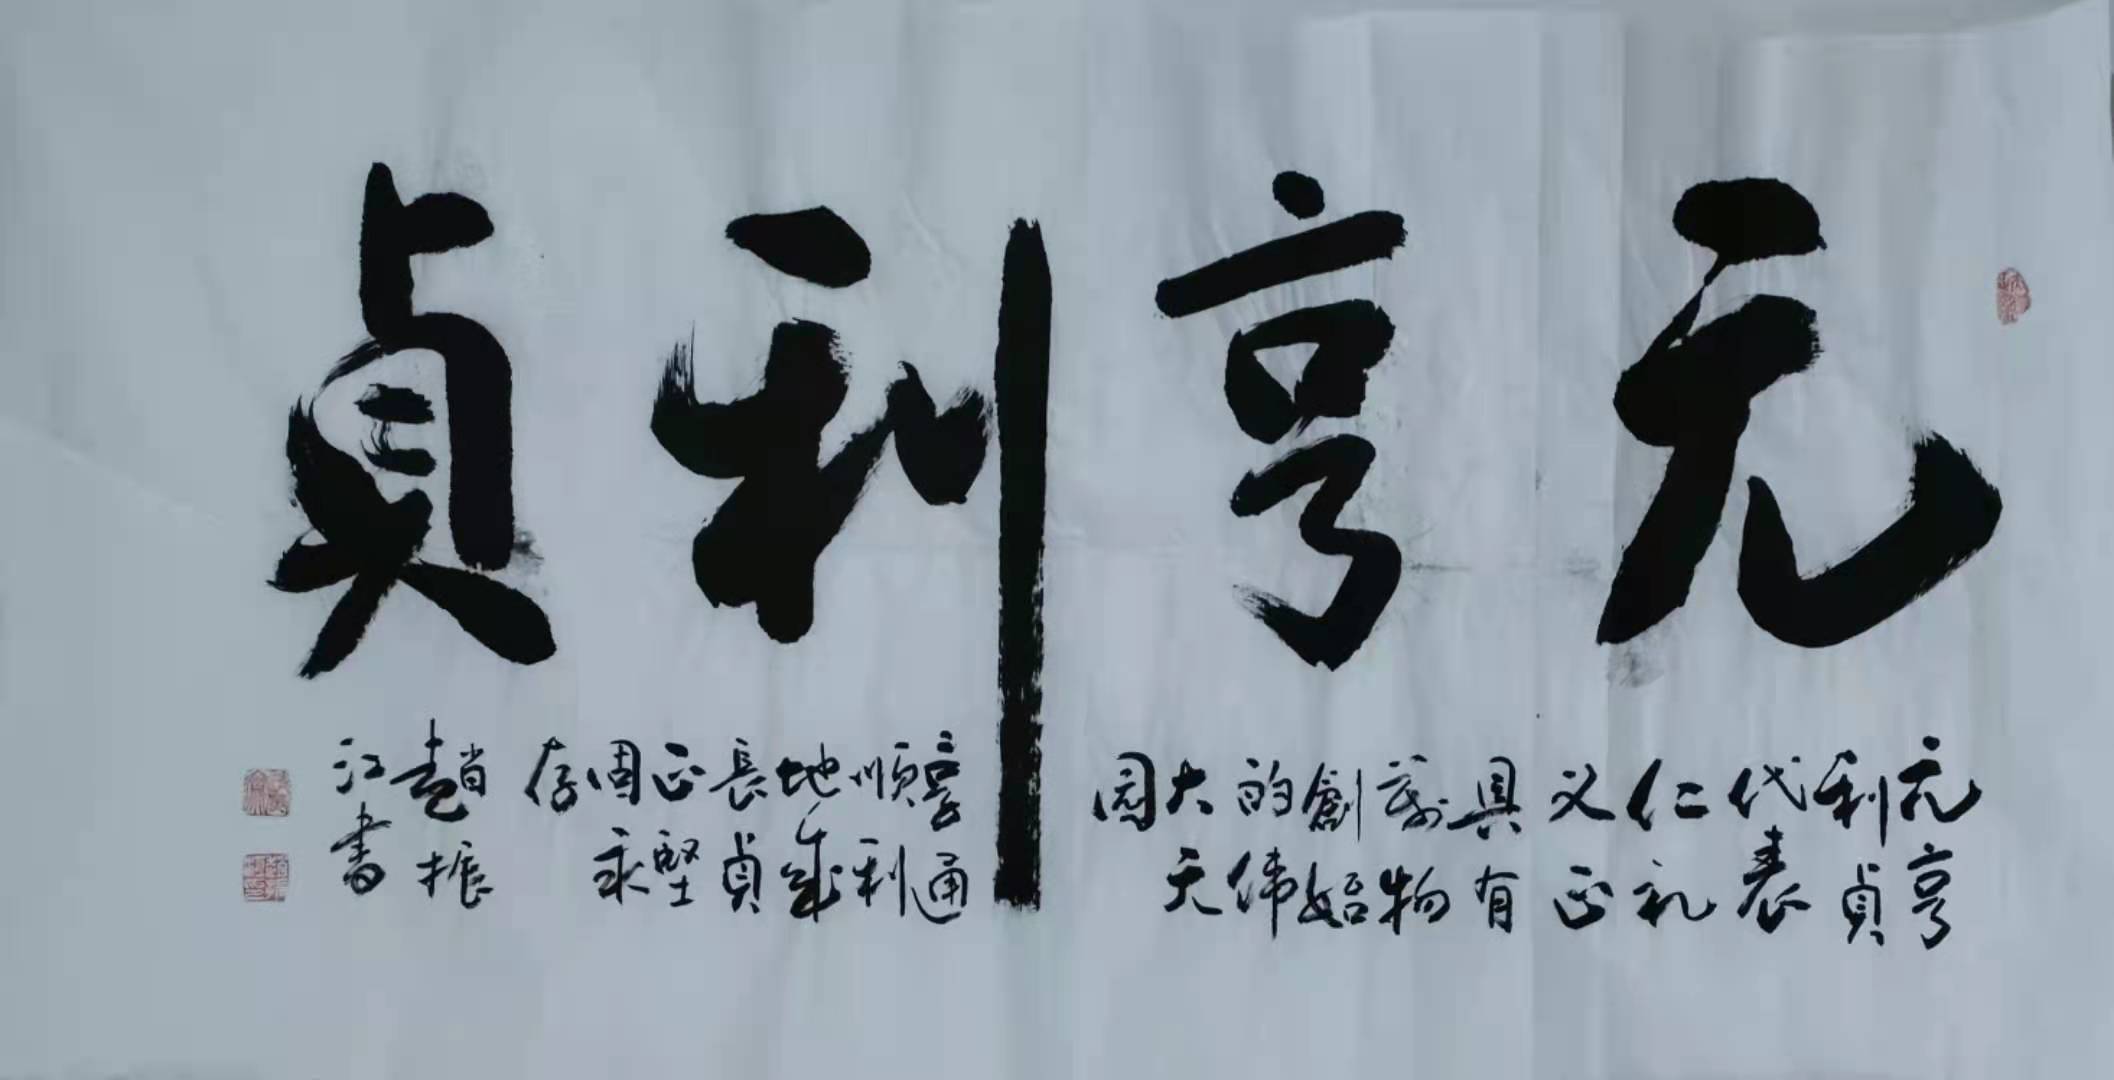 元亨利貞
元亨
利貞
代表
仁礼
义正
具有
萬物
創始
的伟
大天
园
亨通
順利
地成
長貞
正堅
固永
存
趙振
江書